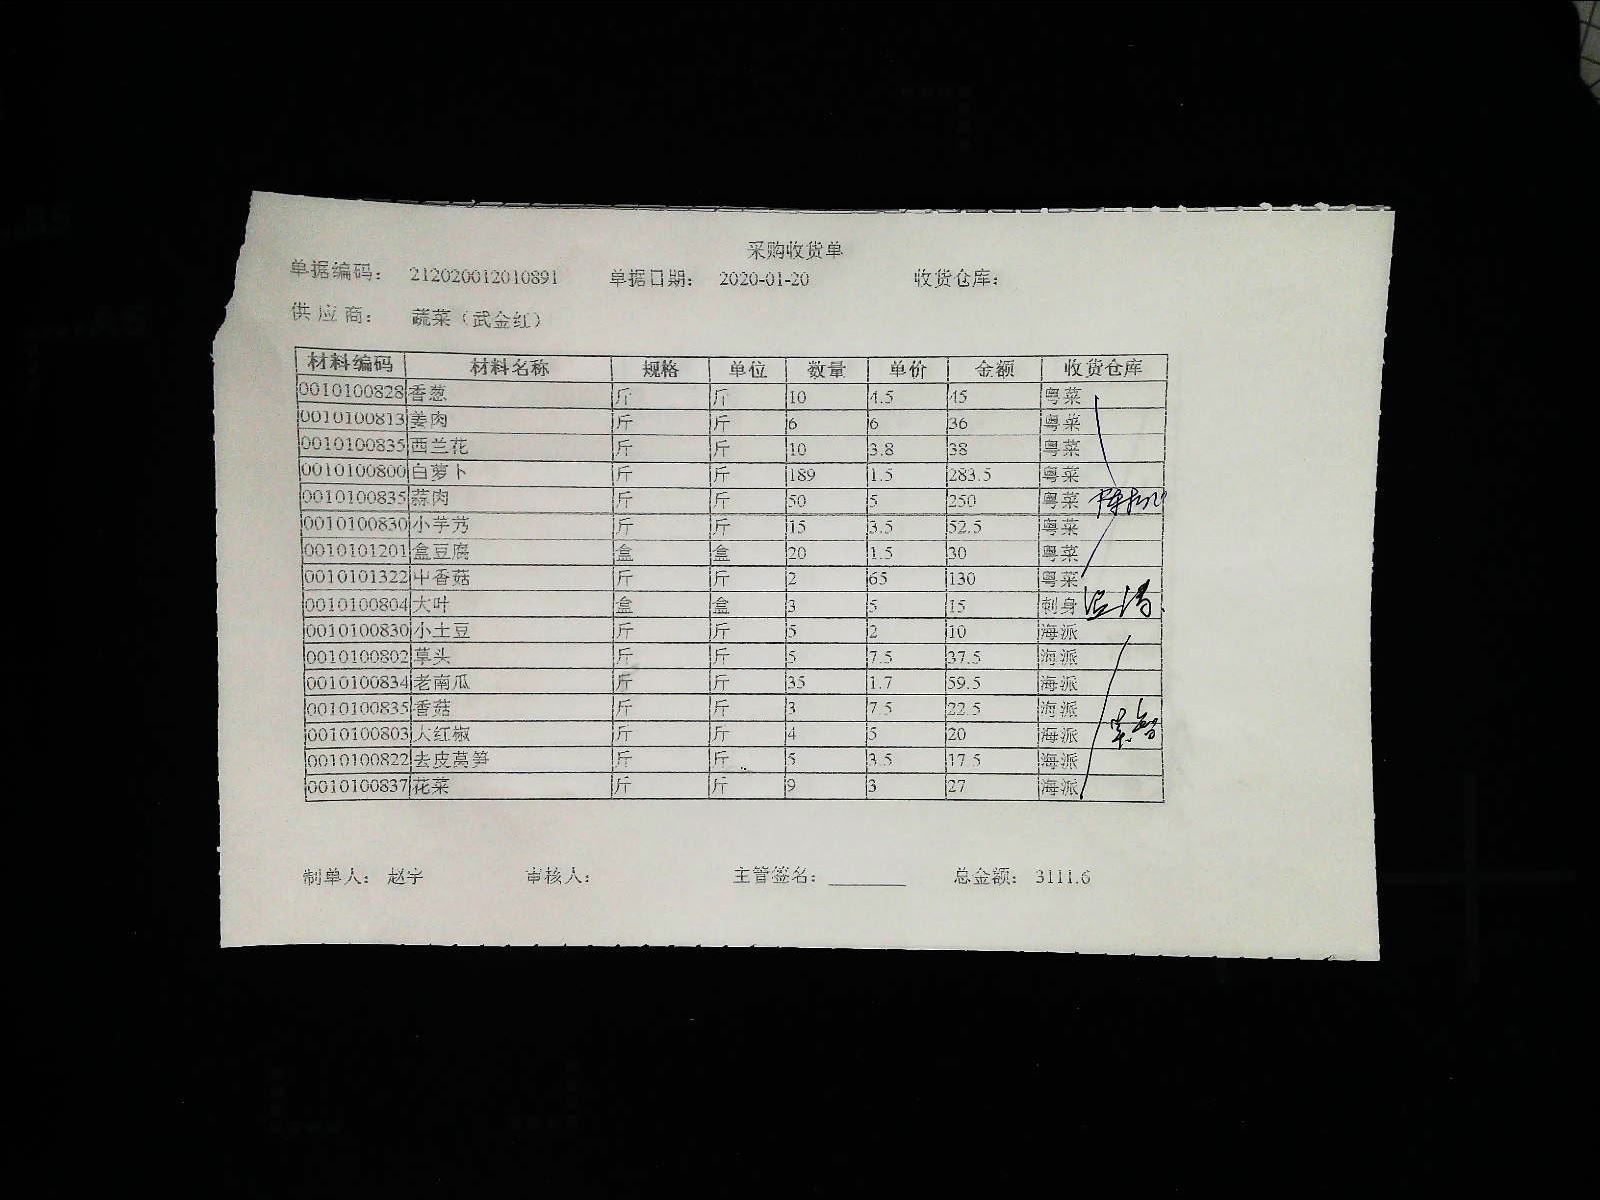 采购收货单
单据编码： 212020012010891 单据日期： 2020-01-20 收货仓库：
供 应 商： 蔬菜（武金红）
材料编码 材料名称 规格 单位 数量 单价 金额 收货仓库
0010100828 香葱 斤 斤 10 4.5 45 粤菜
0010100813 姜肉 斤 斤 6 6 36 粤菜
0010100835 西兰花 斤 斤 10 3.8 38 粤菜
0010100800 白萝卜 斤 斤 189 1.5 283.5 粤菜
0010100835 蒜肉 斤 斤 50 5 250 粤菜
0010100830 小芋艿 斤 斤 15 3.5 52.5 粤菜
0010101201 盒豆腐 盒 盒 20 1.5 30 粤菜
0010101322 中香菇 斤 斤 2 65 130 粤菜
0010100804 大叶 盒 盒 3 5 15 刺身
0010100830 小土豆 斤 斤 5 2 10 海派
0010100802 草头 斤 斤 5 7.5 37.5 海派
0010100834 老南瓜 斤 斤 35 1.7 59.5 海派
0010100835 香菇 斤 斤 3 7.5 22.5 海派
0010100803 大红椒 斤 斤 4 5 20 海派
0010100822 去皮莴笋 斤 斤 5 3.5 17.5 海派
0010100837 花菜 斤 斤 9 3 27 海派
制单人： 赵宇 审核人： 主管签名： 总金额： 3111.6